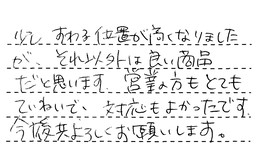 少し、すわる位置が高くなりました
が、それ以外は良い商品
だと思います。営業の方もとても
ていねいで、対応もよかったです。
今後共よろしくお願いします。